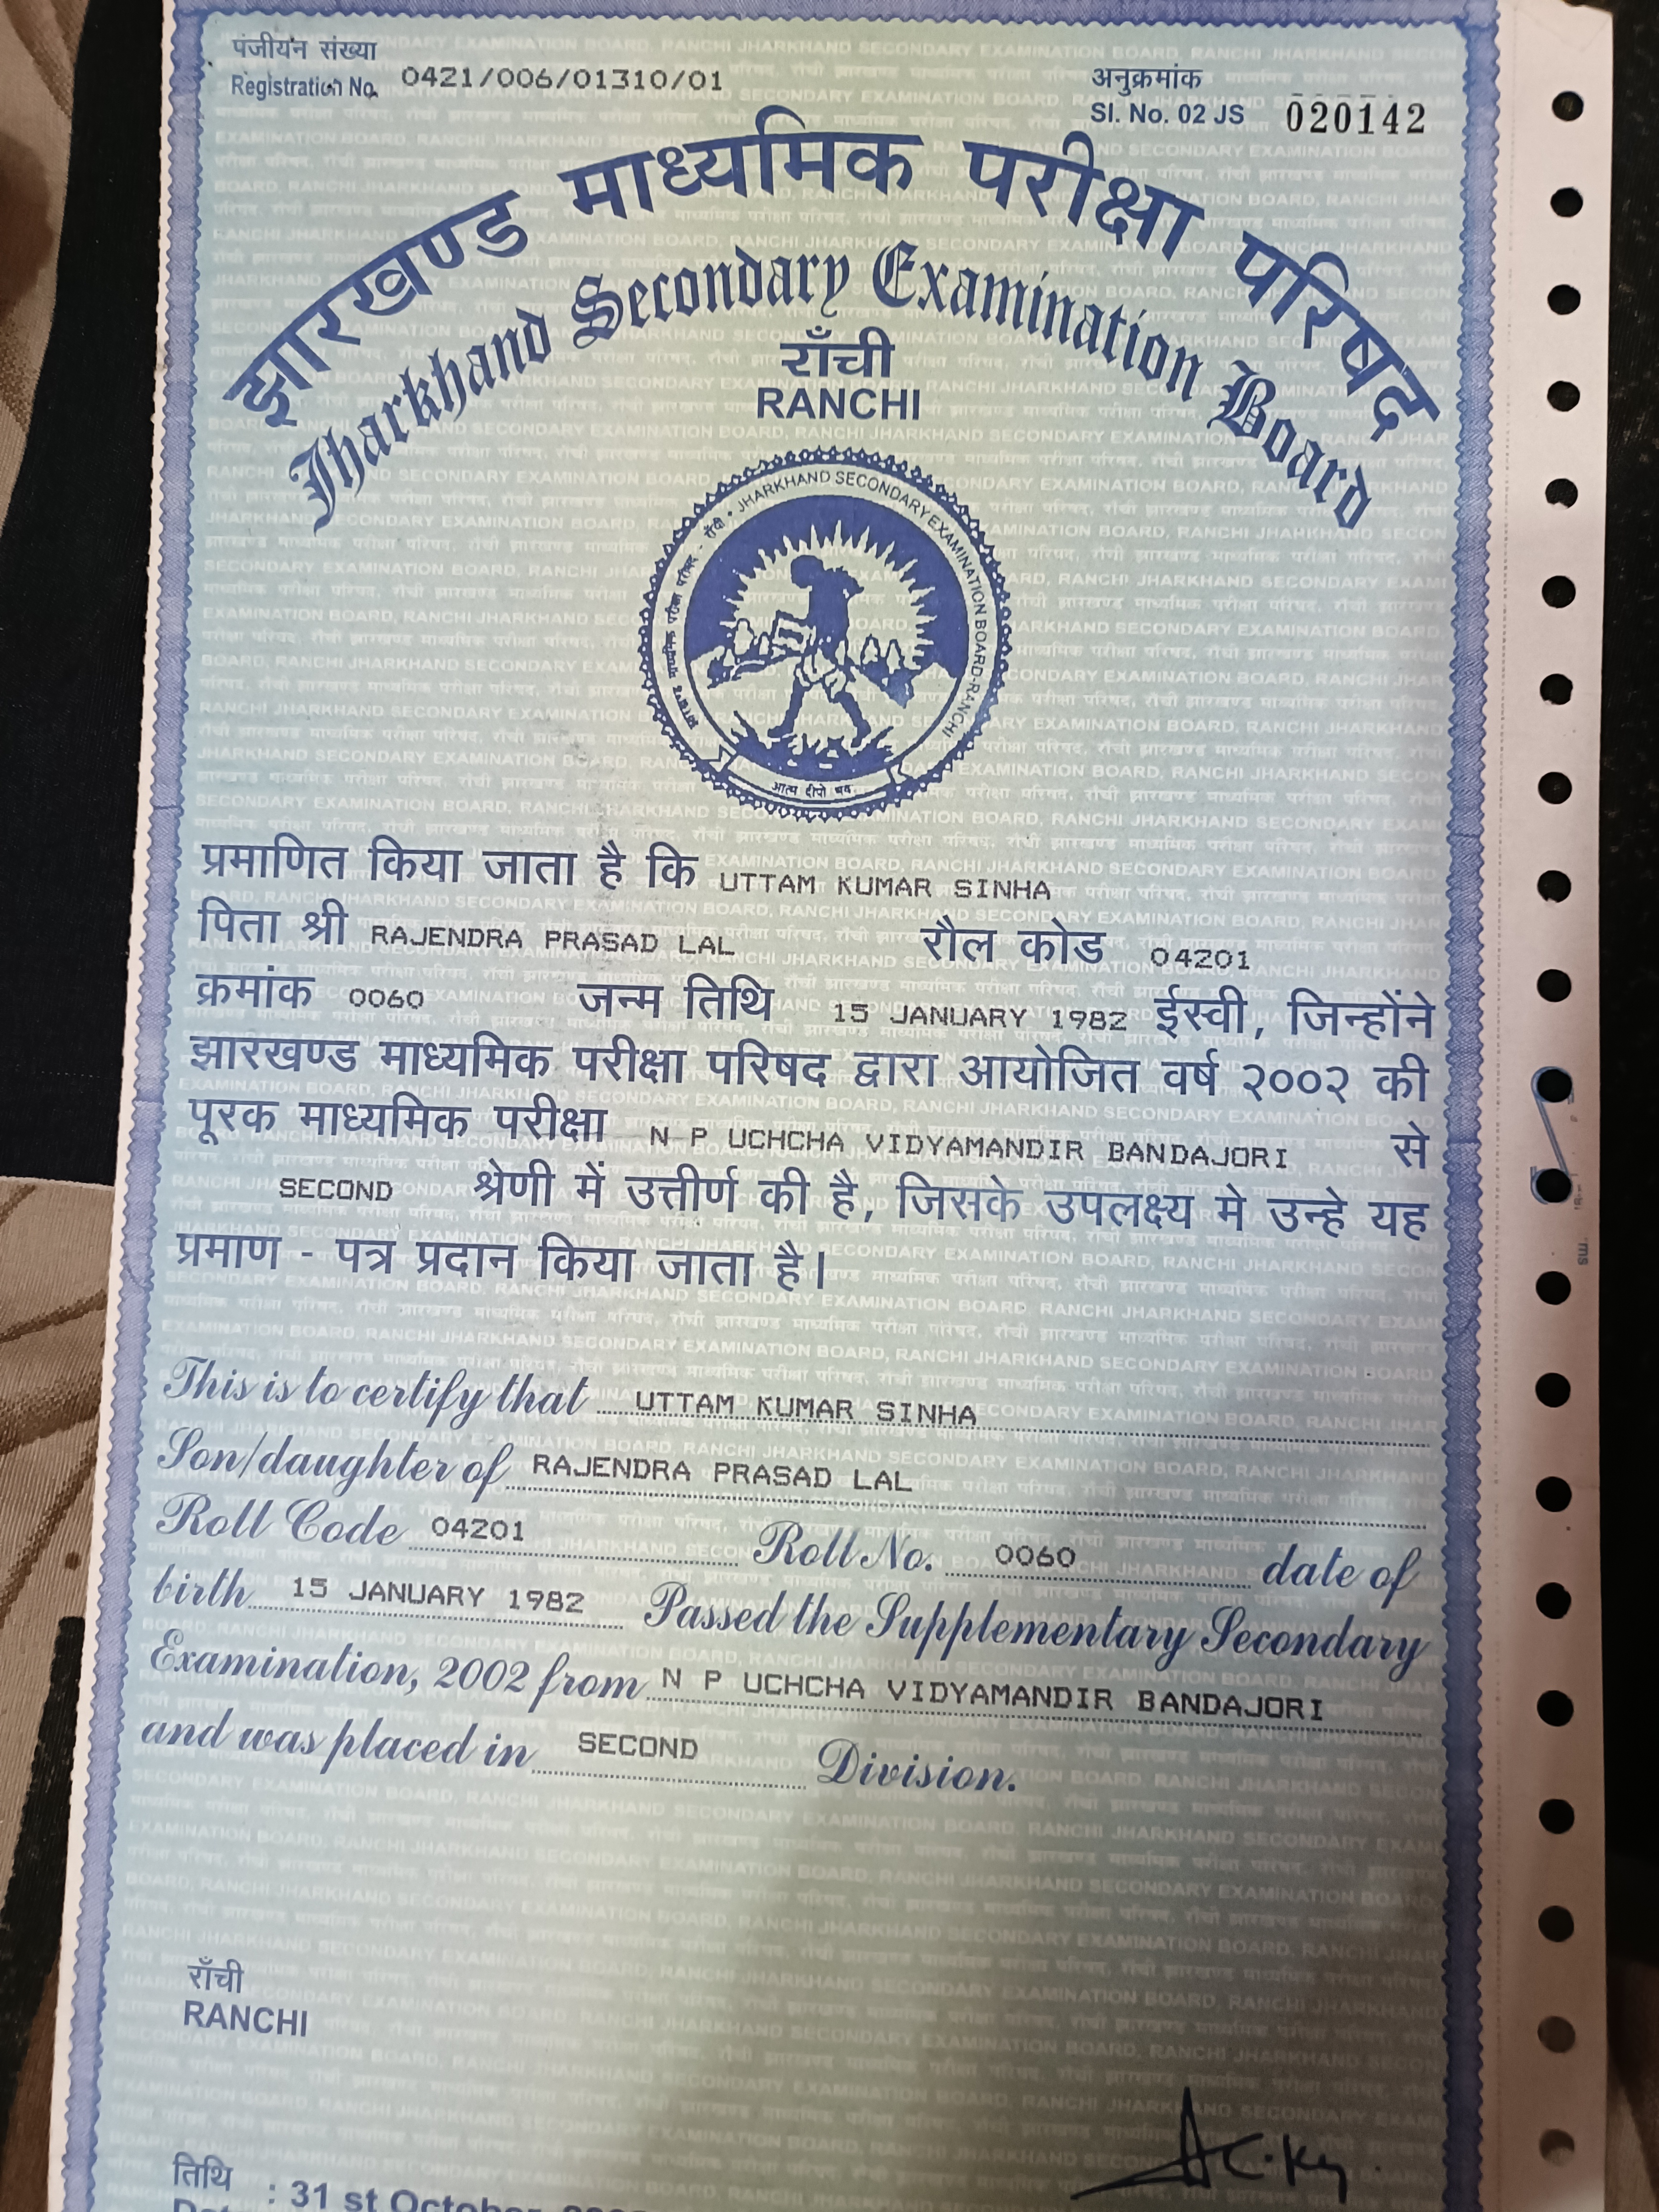 पंजीयन संख्या
Registration No. 0421/006/01310/01
अनुक्रमांक
Sl. No. 02 JS 020142
झारखण्ड माध्यमिक परीक्षा परिषद
Jharkhand Secondary Examination Board
राँची
RANCHI
झारखण्ड माध्यमिक परीक्षा परिषद - राँची • JHARKHAND SECONDARY EXAMINATION BOARD-RANCHI
आत्म दीपो भव
प्रमाणित किया जाता है कि UTTAM KUMAR SINHA
पिता श्री RAJENDRA PRASAD LAL रौल कोड 04201
क्रमांक 0060 जन्म तिथि 15 JANUARY 1982 ईस्वी, जिन्होंने
झारखण्ड माध्यमिक परीक्षा परिषद द्वारा आयोजित वर्ष २००२ की
पूरक माध्यमिक परीक्षा N P UCHCHA VIDYAMANDIR BANDAJORI से
SECOND श्रेणी में उत्तीर्ण की है, जिसके उपलक्ष्य मे उन्हे यह
प्रमाण - पत्र प्रदान किया जाता है।
This is to certify that UTTAM KUMAR SINHA
Son/daughter of RAJENDRA PRASAD LAL
Roll Code 04201 Roll No. 0060 date of
birth 15 JANUARY 1982 Passed the Supplementary Secondary
Examination, 2002 from N P UCHCHA VIDYAMANDIR BANDAJORI
and was placed in SECOND Division.
राँची
RANCHI
तिथि
: 31 st October,